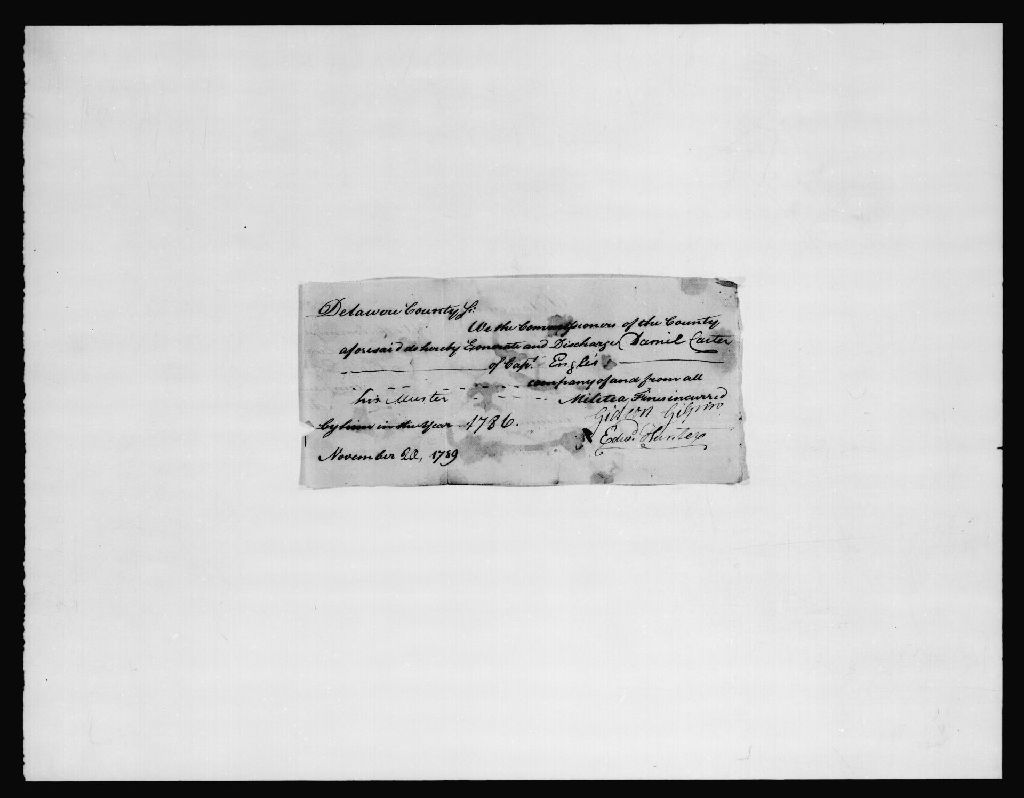 Delaware County Ss.
We the Commissioners of the County
aforesaid do hereby Exonerate and Discharge Daniel Carter
of Capt. Englis
company of and from all
his Muster Militia Fines incurred
by him in the Year 1786.
Gideon Gilpin
Edwd. Hunter
November 1789